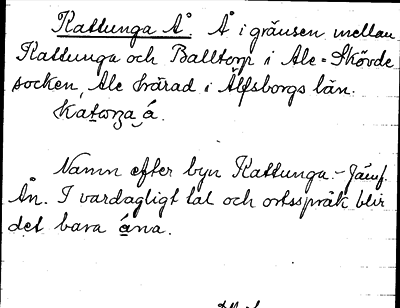 Kattunga Å. Å i gränsen mellan
Kattunga och Balltorp i Ale-Skövde
socken, Ale härad i Älfsborgs län.
Katωŋa á.
Namn efter byn Kattunga. - Jämf.
Ån. I vardagligt tal och ortsspråk blir
det bara ána.